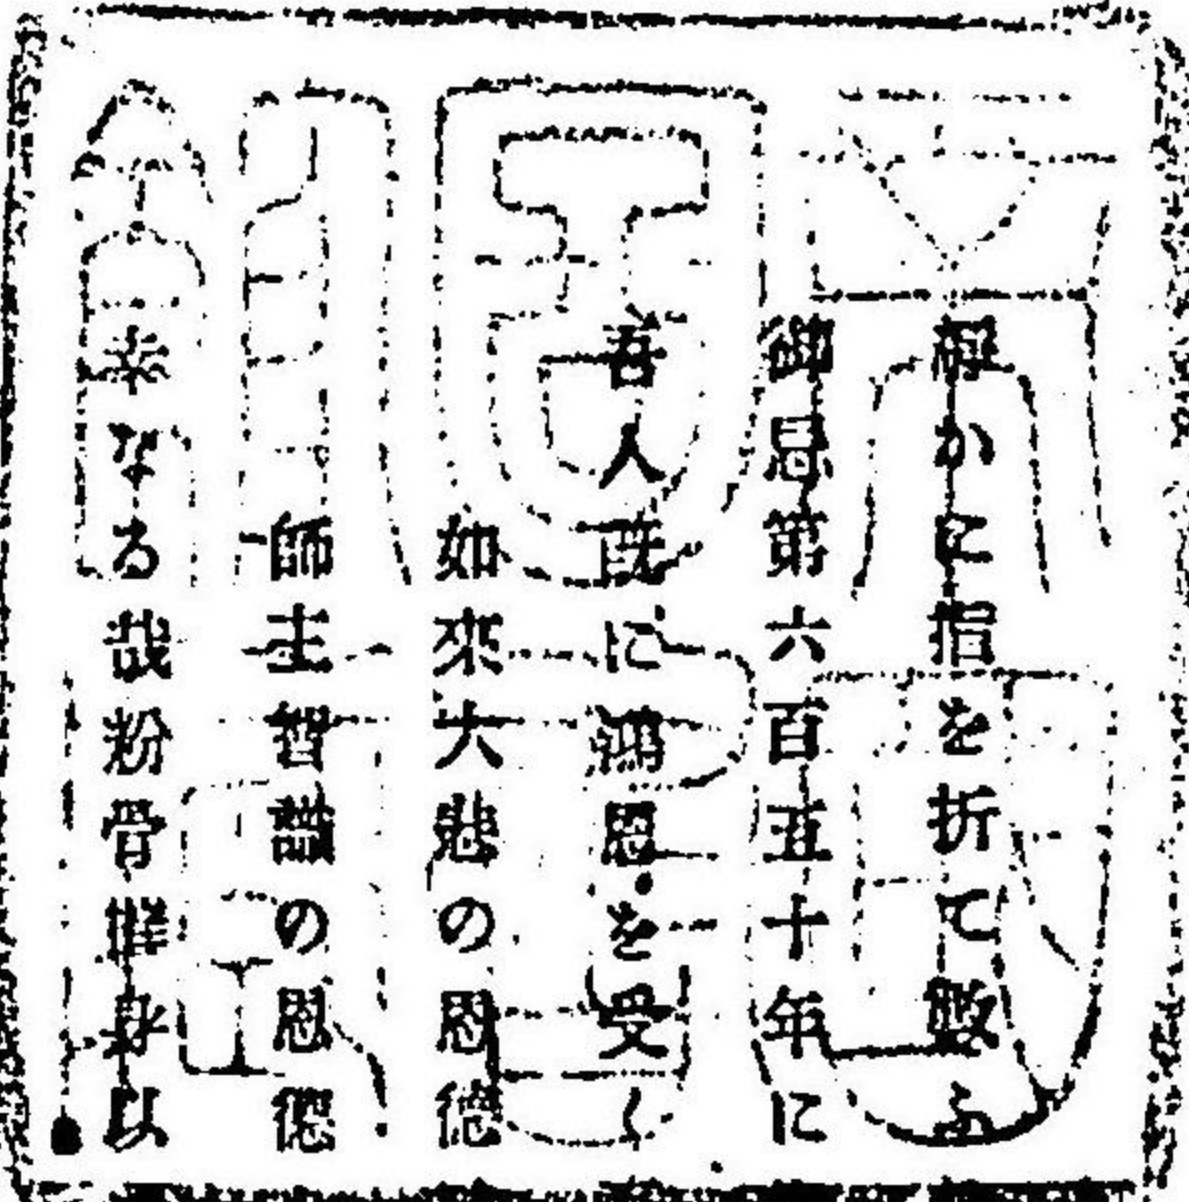 かに指を折て數ふ
御忌第六百五十年に
吾人既に鴻恩を受く
如來大悲の恩德
師主智識の恩德
幸なる哉粉骨摧身以